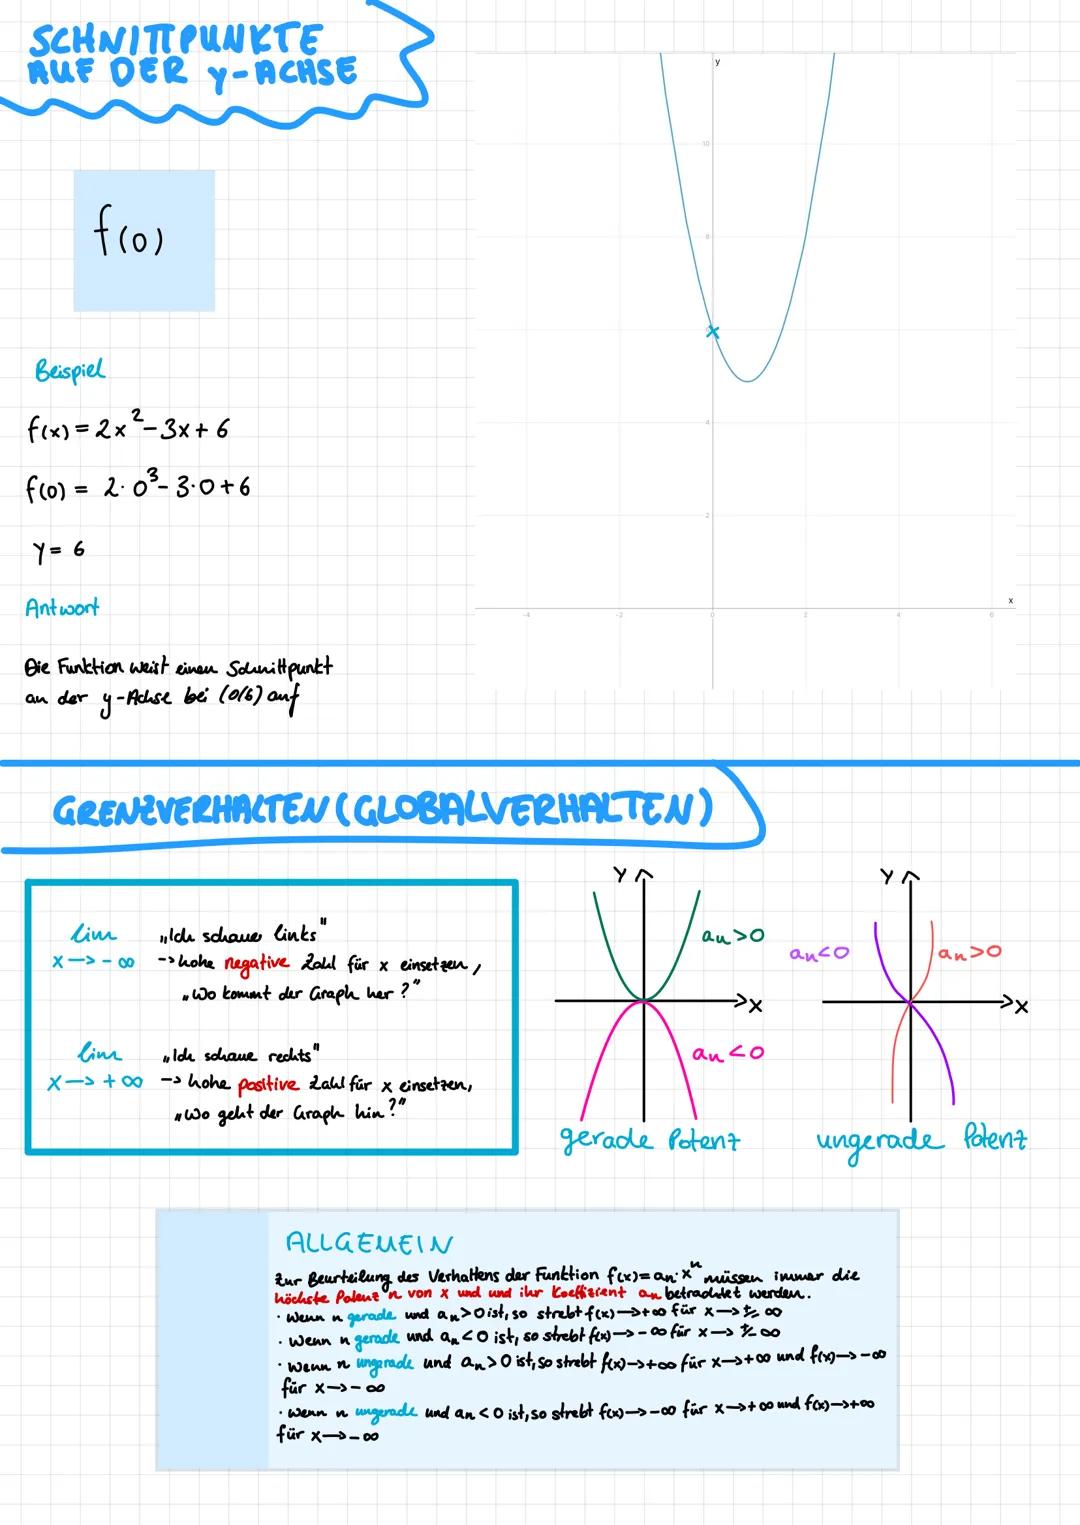 SCHNITTPUNKTE
AUF DER y-ACHSE
f(0)
Beispiel
f(x) = 2x² - 3x + 6
f(0) = 2·0³ - 3·0 + 6
y = 6
Antwort
Die Funktion weist einen Schnittpunkt
an der y-Achse bei (0/6) auf
y
10
8
6
4
2
-4 -2 0 2 4 6
x
GRENZVERHALTEN (GLOBALVERHALTEN)
lim „Ich schaue links"
x → - ∞ -> hohe negative Zahl für x einsetzen,
„Wo kommt der Graph her?"
lim „Ich schaue rechts"
x → + ∞ -> hohe positive Zahl für x einsetzen,
„Wo geht der Graph hin?"
y
an > 0
x
an < 0
gerade Potenz
y
an < 0
an > 0
x
ungerade Potenz
ALLGEMEIN
Zur Beurteilung des Verhaltens der Funktion f(x) = an·xⁿ müssen immer die
höchste Potenz n von x und und ihr Koeffizient an betrachtet werden.
· Wenn n gerade und an > 0 ist, so strebt f(x) → +∞ für x → ± ∞
· Wenn n gerade und an < 0 ist, so strebt f(x) → -∞ für x → ± ∞
· Wenn n ungerade und an > 0 ist, so strebt f(x) → +∞ für x → +∞ und f(x) → -∞
für x → - ∞
· Wenn n ungerade und an < 0 ist, so strebt f(x) → -∞ für x → +∞ und f(x) → +∞
für x → - ∞